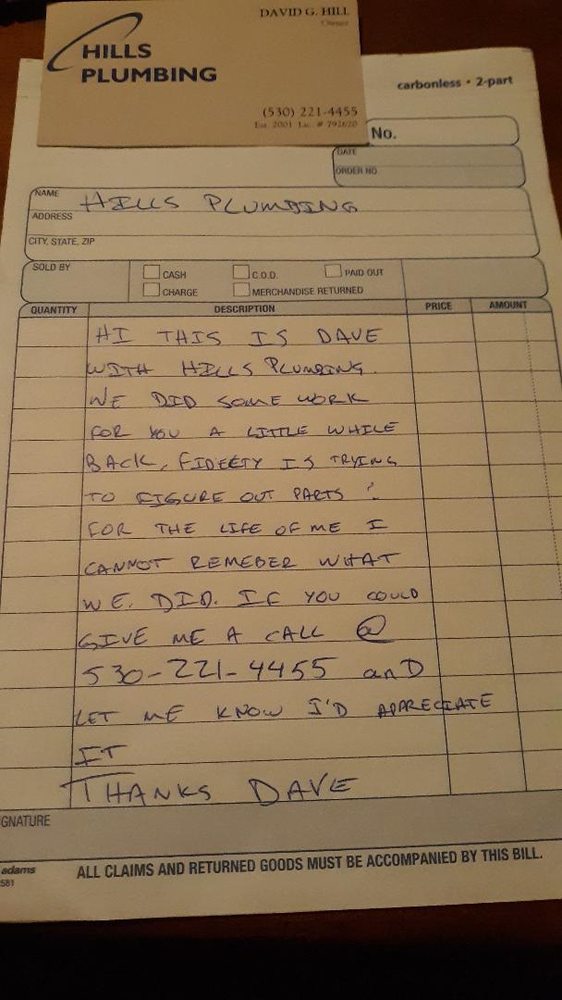 DAVID G. HILL
Owner
HILLS
PLUMBING
(530) 221-4455
Est. 2001 Lic. #
carbonless • 2-part
No.
DATE
ORDER NO.
NAME HILLS PLUMBING
ADDRESS
CITY, STATE, ZIP
SOLD BY
CASH C.O.D. PAID OUT
CHARGE MERCHANDISE RETURNED
QUANTITY DESCRIPTION PRICE AMOUNT
HI THIS IS DAVE
WITH HILLS PLUMBING.
WE DID SOME WORK
FOR YOU A LITTLE WHILE
BACK, FIDEETY IS TRYING
TO FIGURE OUT PARTS !
FOR THE LIFE OF ME I
CANNOT REMEBER WHAT
WE. DID. IF YOU COULD
GIVE ME A CALL @
530-221-4455 anD
LET ME KNOW I'D APPRECIATE
IT
THANKS DAVE
GNATURE
adams
581
ALL CLAIMS AND RETURNED GOODS MUST BE ACCOMPANIED BY THIS BILL.